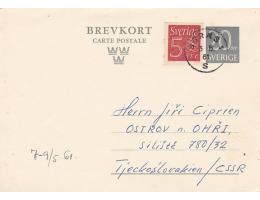 BREVKORT
CARTE POSTALE
Sverige
5
SVERIGE
Herrn Jiří Ciprien
OSTROV n. OHŘÍ,
Sídliště 780/32
Tjeckoslovakien/ČSSR
7-9/5 61.